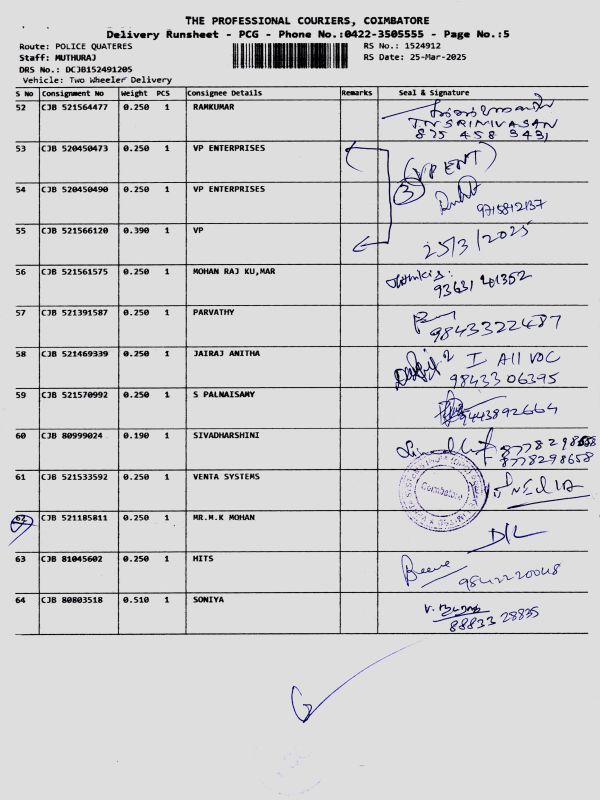 THE PROFESSIONAL COURIERS, COIMBATORE
Delivery Runsheet - PCG - Phone No.:0422-3505555 - Page No.:5
Route: POLICE QUATERES RS No.: 1524912
Staff: MUTHURAJ RS Date: 25-Mar-2025
DRS No.: DCJB152491205
Vehicle: Two Wheeler Delivery
S No Consignment No Weight PCS Consignee Details Remarks Seal & Signature
52 CJB 521564477 0.250 1 RAMKUMAR
TN SRINIVASAN
875 458 3431
53 CJB 520450473 0.250 1 VP ENTERPRISES (VP ENT)
54 CJB 520450490 0.250 1 VP ENTERPRISES 3
9715812137
55 CJB 521566120 0.390 1 VP 25/3/2025
56 CJB 521561575 0.250 1 MOHAN RAJ KU,MAR
93631 41352
57 CJB 521391587 0.250 1 PARVATHY
9843322487
58 CJB 521469339 0.250 1 JAIRAJ ANITHA
98433 06395
59 CJB 521570992 0.250 1 S PALNAISAMY
9443892664
60 CJB 80999024 0.190 1 SIVADHARSHINI
8778298658
61 CJB 521533592 0.250 1 VENTA SYSTEMS
Coimbatore
62 CJB 521185811 0.250 1 MR.M.K MOHAN D/L
63 CJB 81045602 0.250 1 HITS
9842220048
64 CJB 80803518 0.510 1 SONIYA
88833 28835